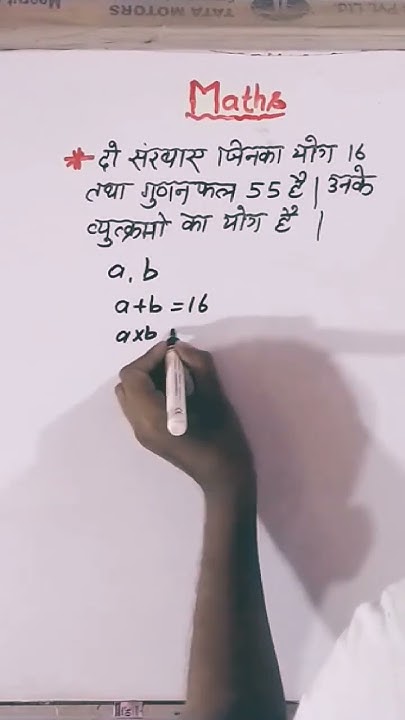 TATA MOTORS
Maths
* दो संख्याए जिनका योग 16
तथा गुणनफल 55 है | उनके
व्युत्क्रमो का योग है |
a, b
a+b = 16
a×b